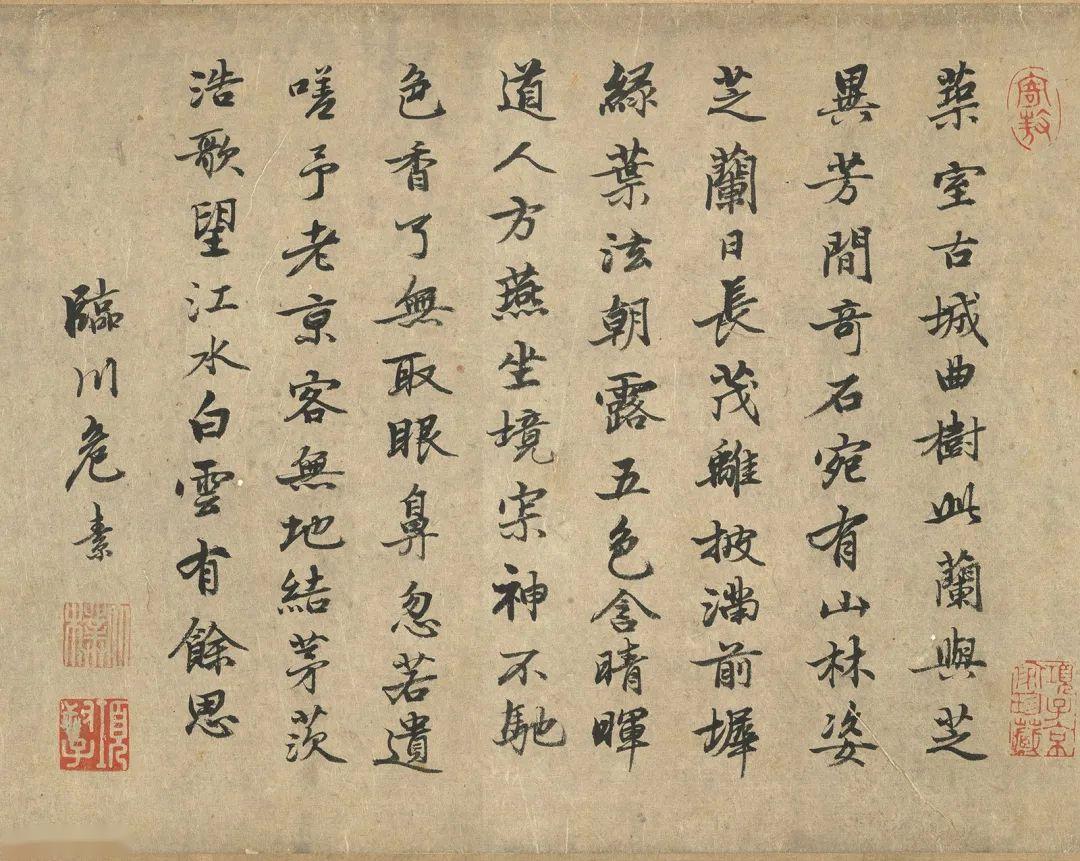 築室古城曲樹此蘭與芝
異芳間奇石宛有山林姿
芝蘭日長茂離披滿前墀
綠葉泫朝露五色含晴暉
道人方燕坐境寂神不馳
色香了無取眼鼻忽若遺
嗟予老京客無地結茅茨
浩歌望江水白雲有餘思
臨川危素
項子京家珍藏
項叔子